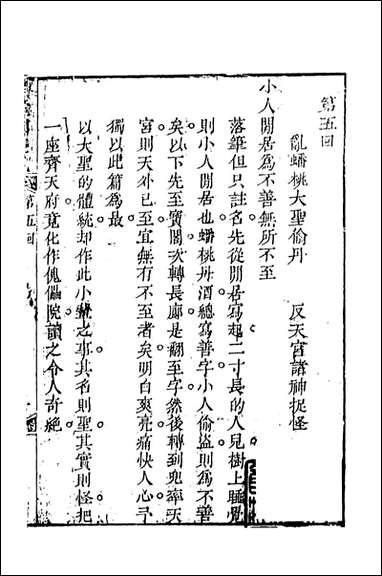 第五回
亂蟠桃大聖偷丹　反天宮諸神捉怪
小人閒居為不善無所不至
落筆但只註名先從閒居寫起二寸長的人見樹上睡覺
則小人閒居也蟠桃丹酒總寫善字小人偷盜則為不善
矣以下先至寶閣次轉長廊是翻至字然後轉到兜率天
宮則天外已至宜無有不至者矣明白爽亮痛快人心予
獨以此篇為最
以大聖的體統却作此小之事其名則聖其實則怪把
一座齊天府竟化作傀儡院讀之令人奇絕
第五回